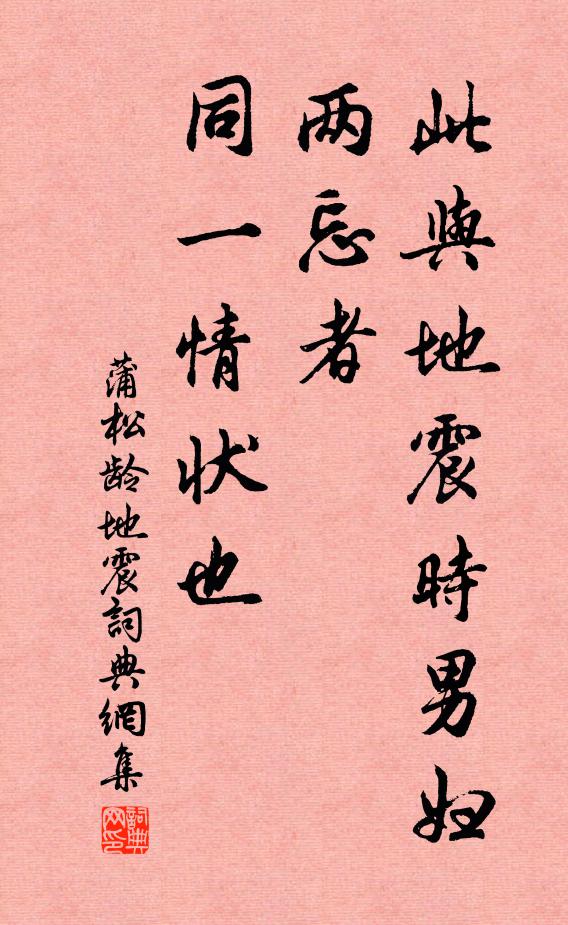 此與地震時男妇
两忘者
同一情状也
蒲松龄地震詞典網集
詞典网印